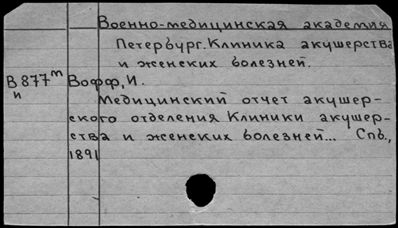 Военно-медицинская академия
Петербург. Клиника акушерства
и женских болезней.
В877т Вофф, И.
и
Медицинский отчет акушер-
ского отделения Клиники акушер-
ства и женских болезней... Спб.,
1891